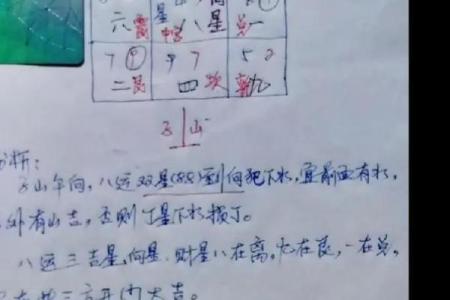 六 星 八 星 一
7 9 9 7 5 2
二艮 四坎 乾九
子山
分析:
子山午向,八运双星(88)到向犯下水,宜前面有水,
外有山吉,否则丁星下水损丁。
八运三吉星,向星,财星八在离,九在艮,一在兑,
三方开门大吉。